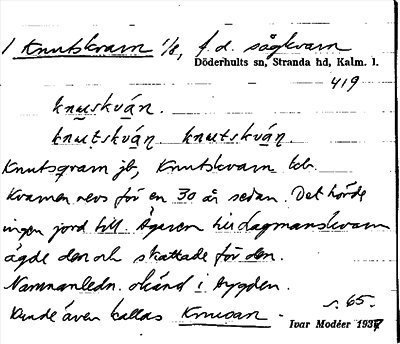 1 Knutskvarn 1/8, f.d. sågkvarn
Döderhults sn, Stranda hd, Kalm. l.
419
knuskván.
knutskván knutskván.
Knutsqvarn jb, Knutskvarn
Kvarnen revs för en 30 år sedan. Det hörde
ingen jord till. Ägaren
ägde den och skattade för den.
Namnanledn. okänd i bygden.
s. 65.
Kunde även kallas Knusan.
Ivar Modéer 1937